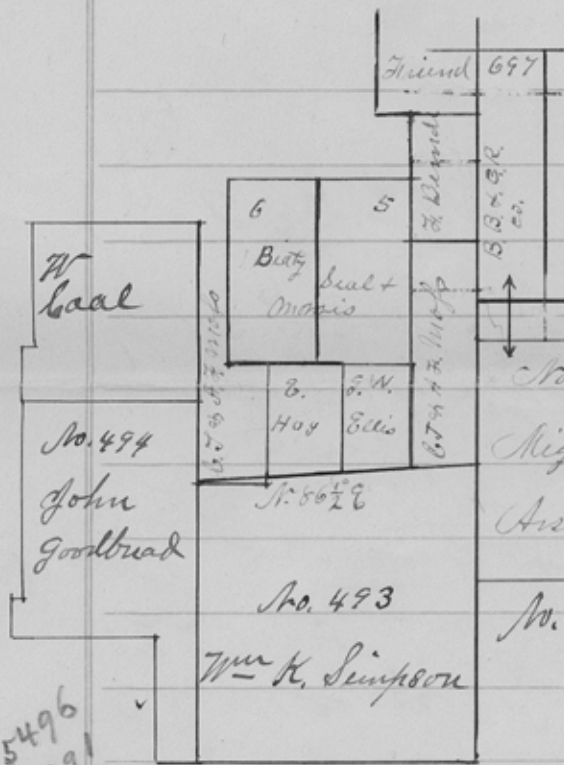 Friend
697
F. Bemd
B. B. & G. R.
Co.
6
5
Beaty
Seal +
Morris
W
Coal
C. T. & A. F. Moss
C. T. & A. F. Moss
E.
Hay
E. W.
Ellis
No. 494
John
Goodbread
N. 86½° E
No. 493
Wm K. Simpson
No
Mig
Ars
No.
5496
91